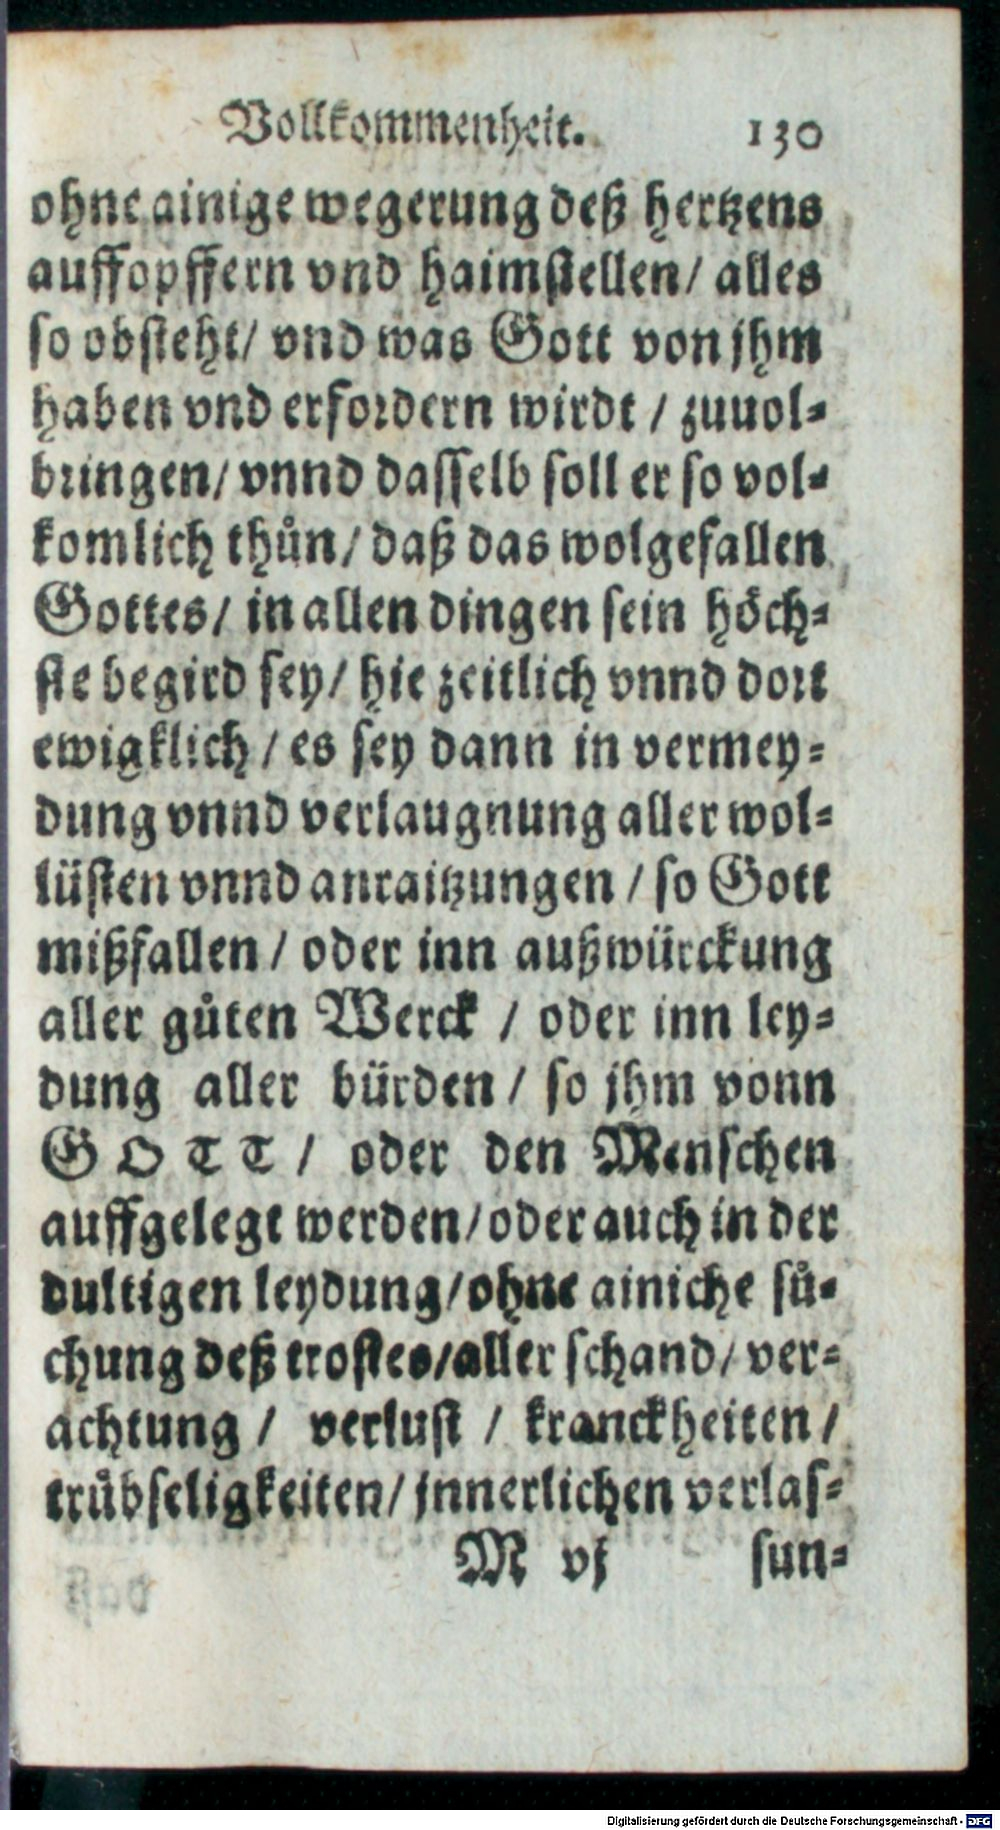 Vollkommenheit. 130
ohne ainige wegerung deß hertzens
auffopffern vnd haimstellen/ alles
so obsteht/ vnd was Gott von jhm
haben vnd erfordern wirdt / zuuol-
bringen/ vnnd dasselb soll er so vol-
komlich thůn/ daß das wolgefallen
Gottes/ in allen dingen sein höch-
ste begird sey/ hie zeitlich vnnd dort
ewigklich / es sey dann in vermey-
dung vnnd verlaugnung aller wol-
lüsten vnnd anraitzungen / so Gott
mißfallen / oder inn außwürckung
aller gůten Werck / oder inn ley-
dung aller bürden / so jhm vonn
GOTT/ oder den Menschen
auffgelegt werden/ oder auch in der
dultigen leydung/ ohne ainiche sů-
chung deß trostes/ aller schand/ ver-
achtung / verlust / kranckheiten /
trůbseligkeiten/ jnnerlichen verlas-
M vj sun-
Digitalisierung gefördert durch die Deutsche Forschungsgemeinschaft - DFG